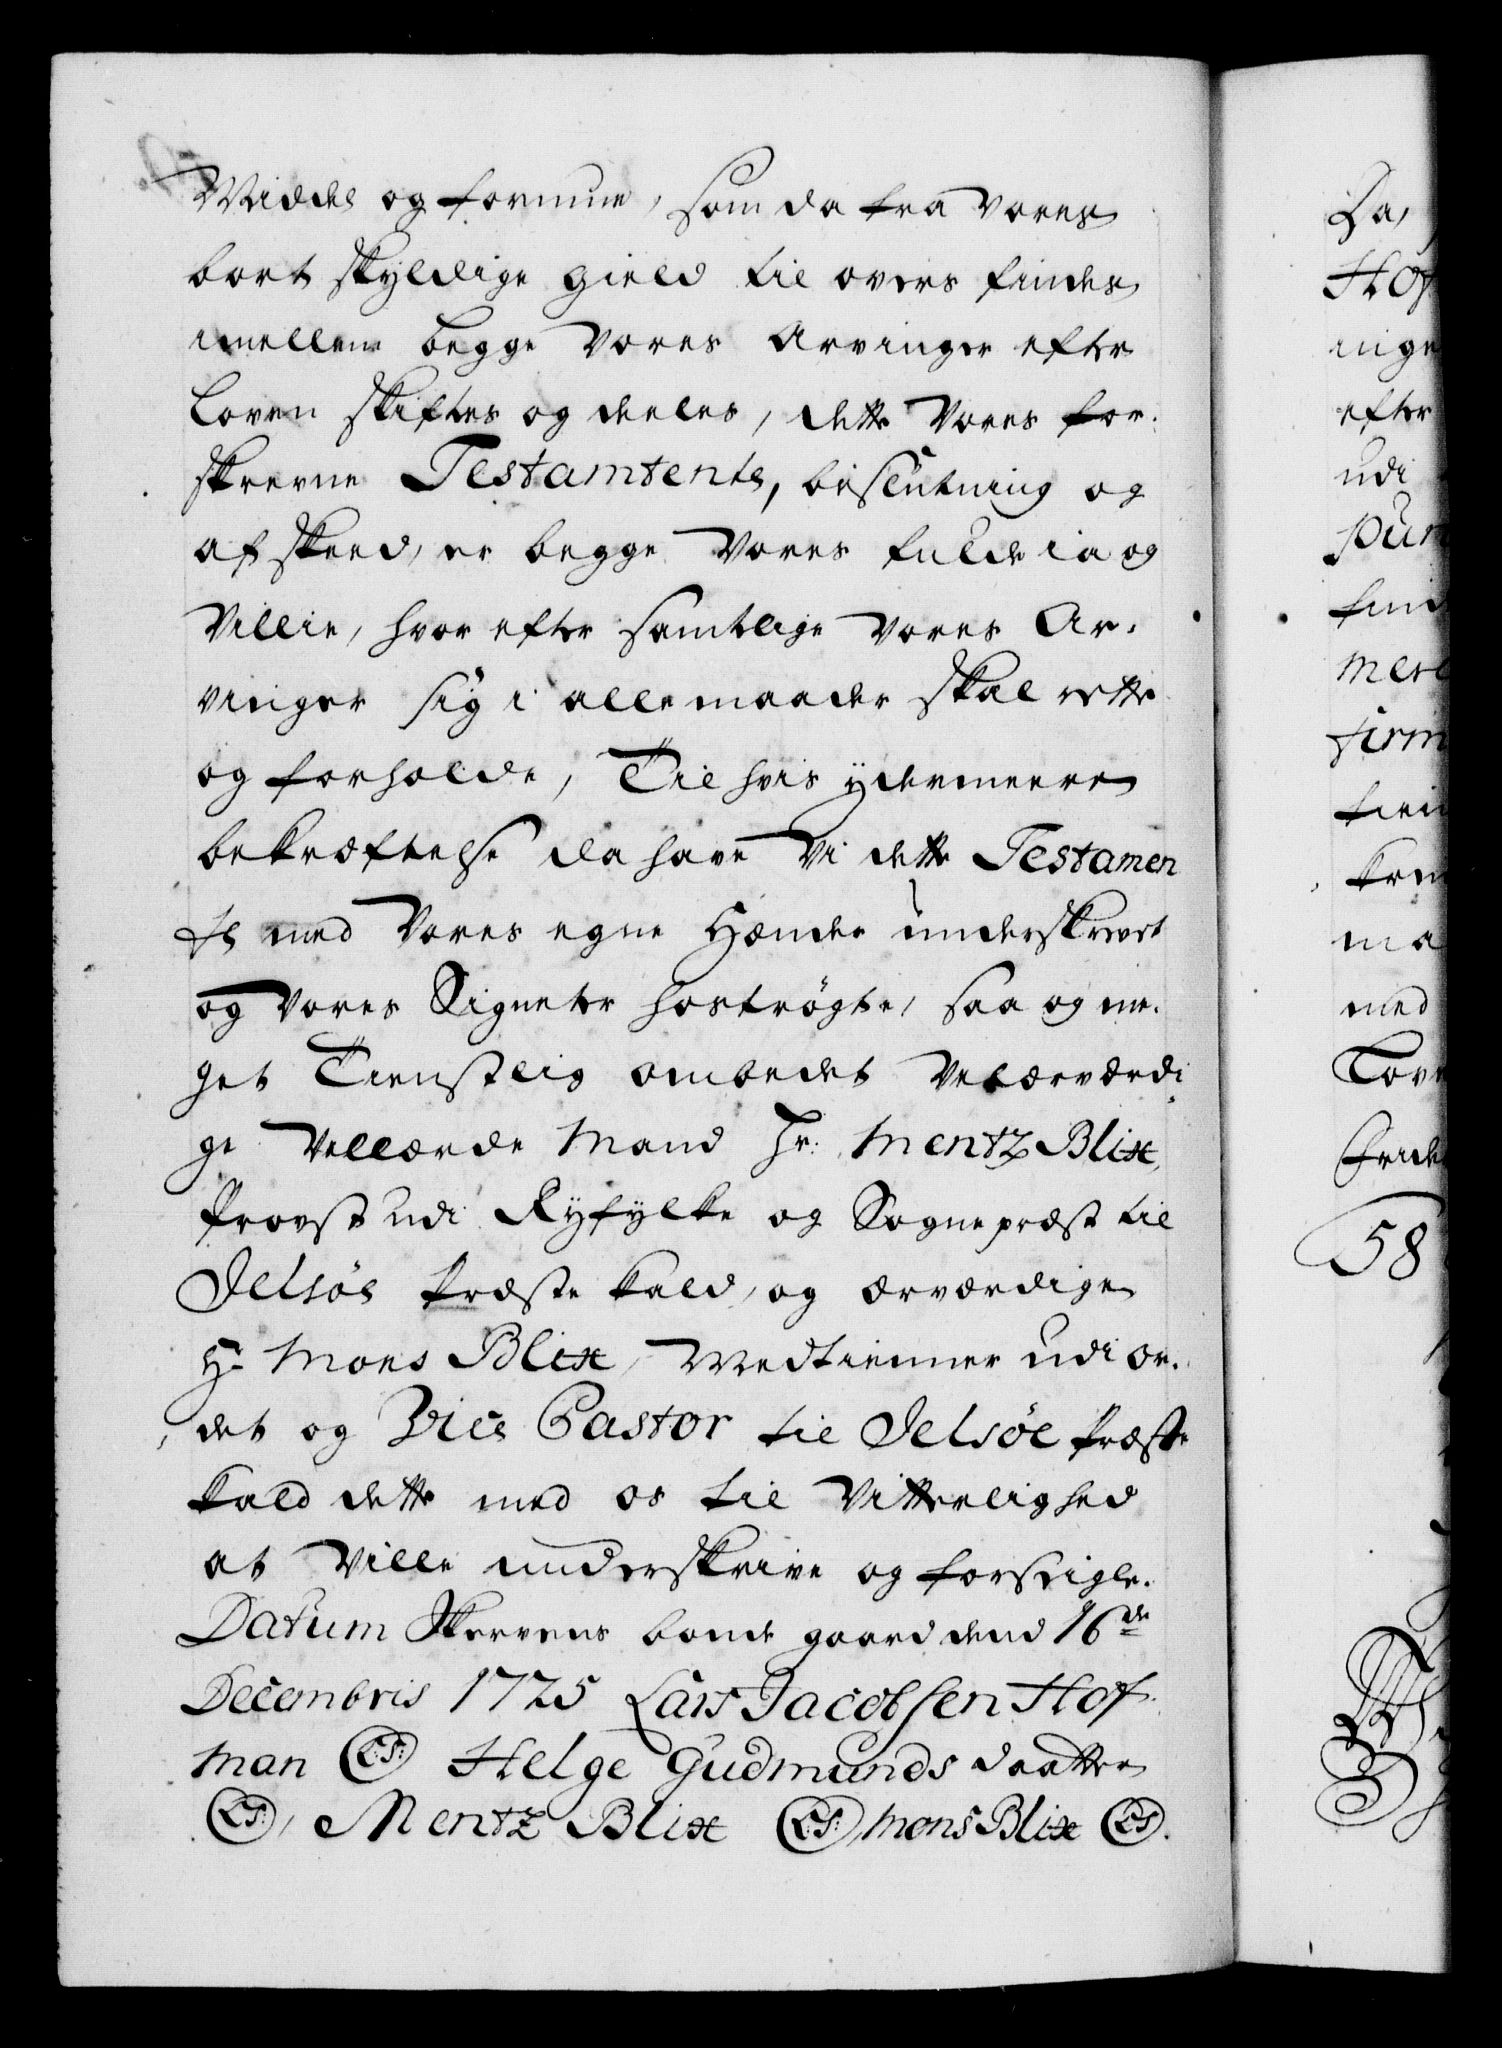 Middel og formue, som da fra Vores
bort skyldige Gield til overs findes
imellem begge Vores Arvinger efter
Loven skiftes og deeles, dette Vores for.
skrevne Testamtente, besluttning og
afskeed, er begge Vores fulde ia og
Villie, hvor efter samtlige Vores Ar.
vinger sig i alle maader skal rette
og forholde, Til hvis ydermeere
bekræftelse da have Vi dette Testamen
te med Vores egne Hænder underskrevet
og Vores Signeter hostrøgte, saa og me.
get Tienstlig ombedet Velærværdi
ge Vellærde Mand Hr: Mentz Blix,
Provst udi Ryfylke og Sognepræst til
Jelsøe Præste kald, og ærværdige
Hr Mons Blix, Medtienner udi or.
det og Vice Pastor til Jelsøe Præste
kald dette med os til Vitterlighed
at Ville underskrive og forseigle.
Datum Skervens bonde gaard dend 16de
Decembris 1725 Lars Jacobsen Hof
man (LS:) Helge Gudmunds daatter
(LS:), Mentz Blix (LS:), Mons Blix (LS).
Da,
Hof
inge
efter
udi
pun
find
mere
firm
tien
krm
ma
med
Tov
Fride
58